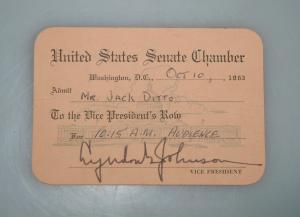 United States Senate Chamber
Washington, D.C., Oct 10, 1963
Admit Mr. Jack Ditto
To the Vice President's Row
For 10:15 A.M. Audience
Lyndon B. Johnson
VICE PRESIDENT